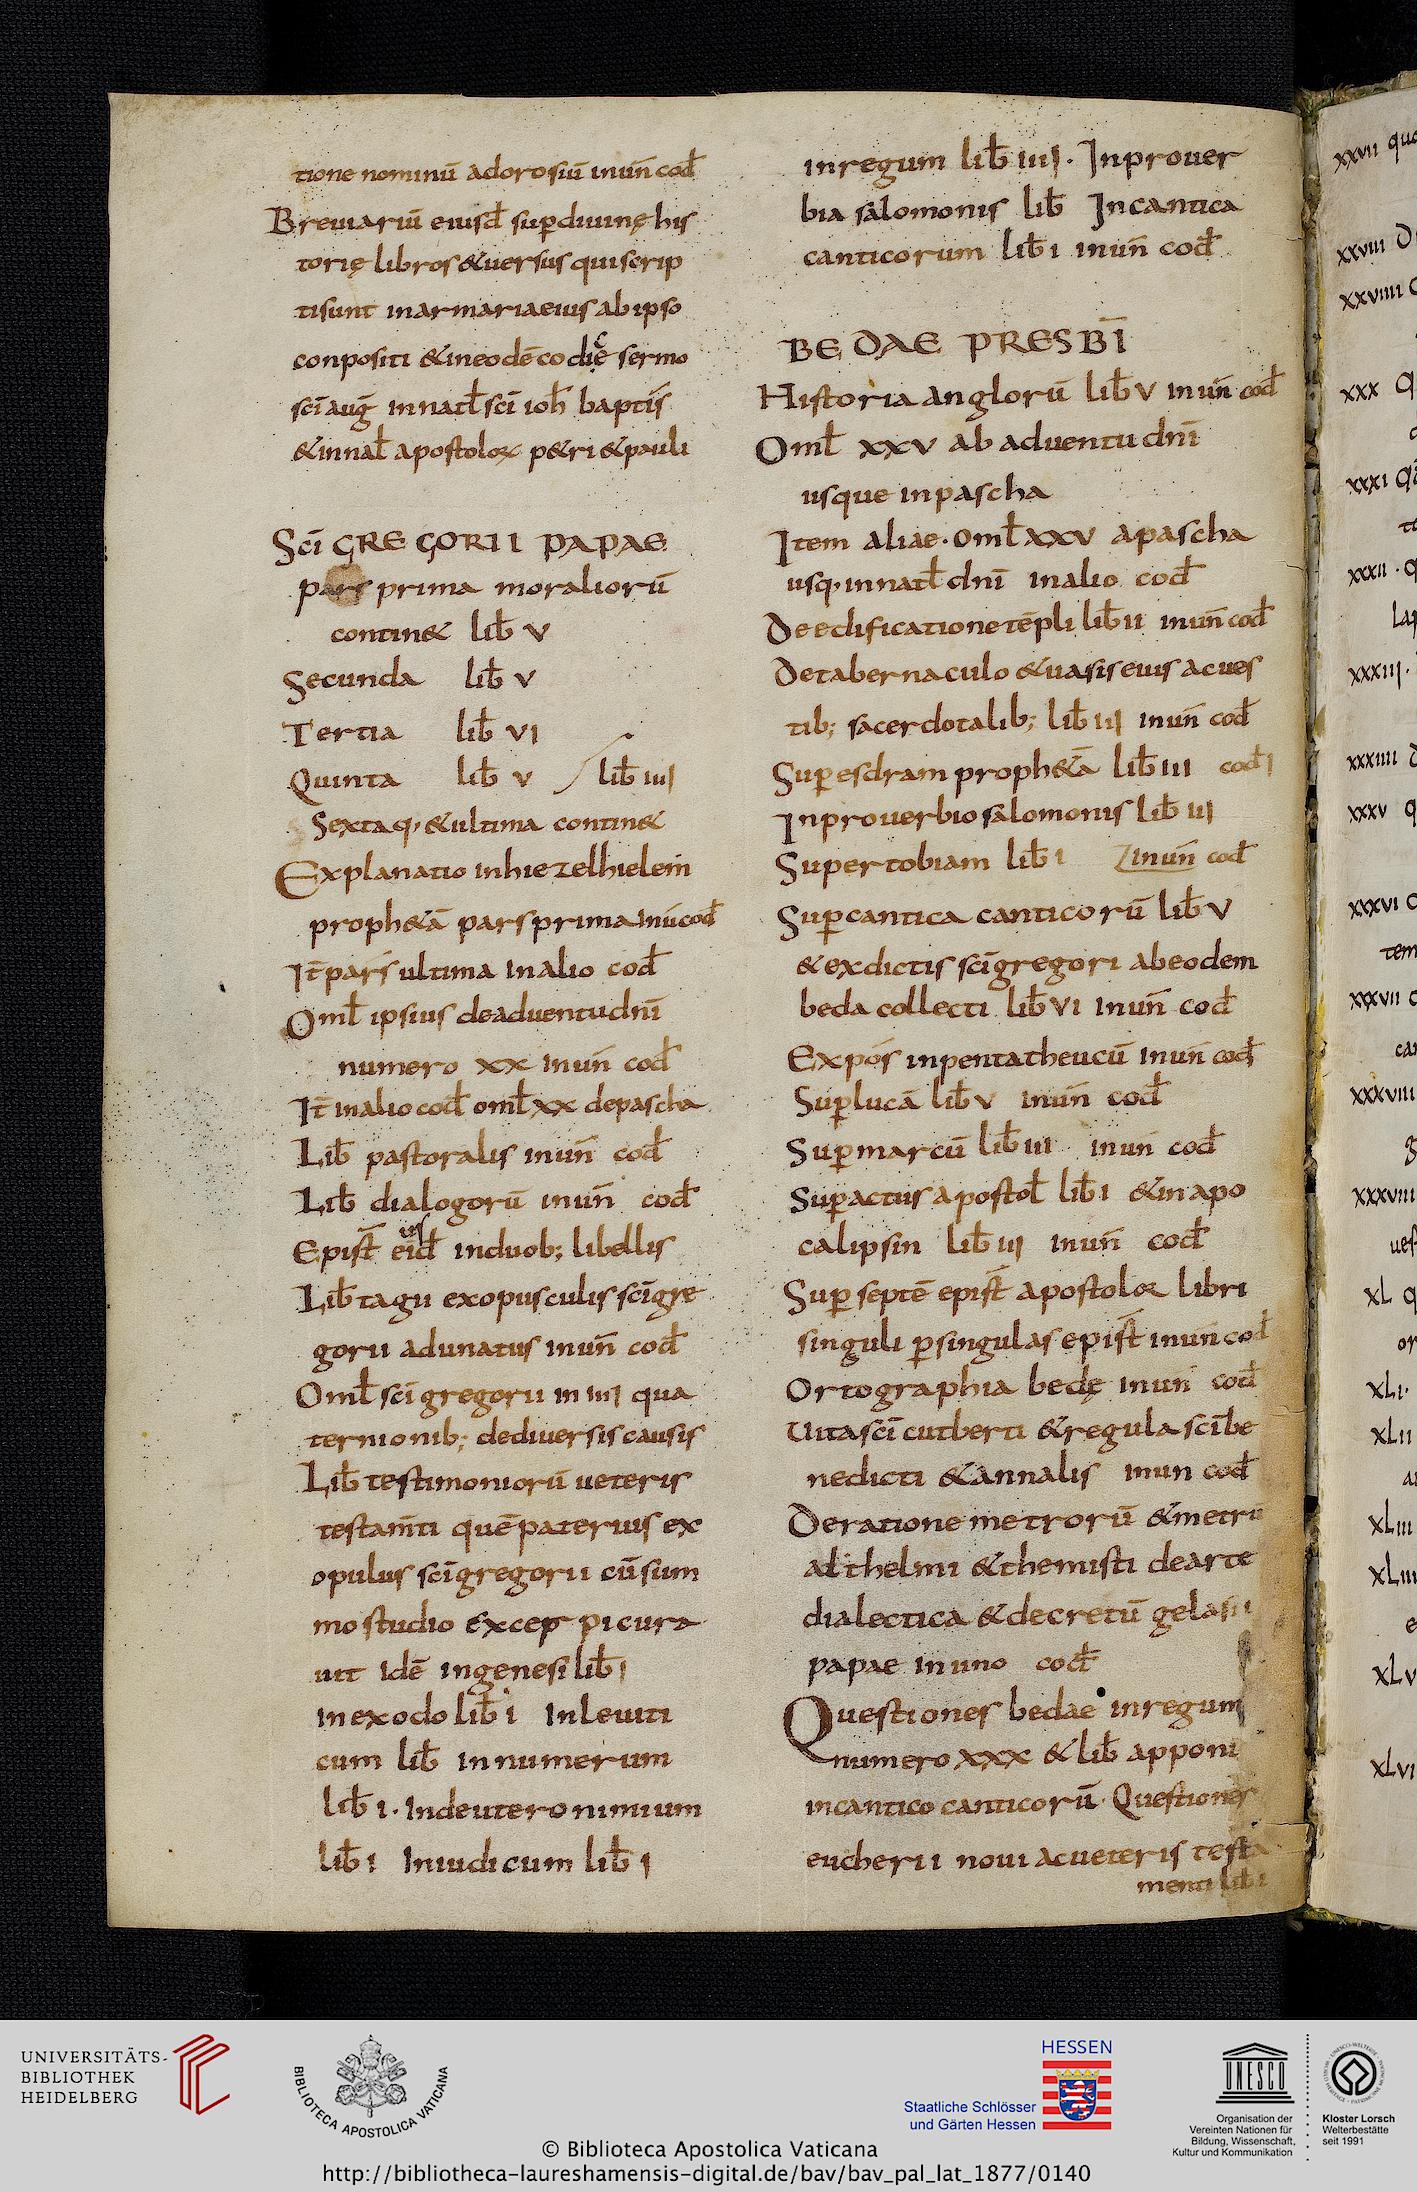 tione nominū ad orosiū in un̄ cod̄
Breviariū eiusd̄ sup̱ divinę his
torię libros & versus qui scrip
ti sunt in armaria eius ab ipso
conpositi & in eodē codicę sermo
sc̄i auḡ in natl̄ sc̄i ioh̄ baptis̄
& in nal̄ apostoloꝝ p&ri & pauli
Sc̄i GREGORII PAPAE
pars prima moraliorū
contin& lib̄ V
Secunda lib̄ V
Tertia lib̄ VI
Quinta lib̄ V lib̄ IIII
Sextaq; & ultima contin&
Explanatio in hiezelhielem
proph&ā pars prima in ū cod̄
It̄ pars ultima in alio cod̄
Oml̄ ipsius de adventu dn̄i
numero XX in un̄ cod̄
It̄ in alio cod̄ oml̄ XX de pascha
Lib̄ pastoralis in un̄ cod̄
Lib̄ dialogorū in un̄ cod̄
Epist̄ eiusd̄ in duob; libellis
Lib̄ tagii ex opusculis sc̄i gre
gorii adunatus in un̄ cod̄
Oml̄ sc̄i gregorii in IIII qua
ternionib; de diversis causis
Lib̄ testimoniorū veteris
testam̄ti quē paterius ex
opulus sc̄i gregorii cū sum
mo studio excerpi cura
vit Idē in genesi lib̄ I
In exodo lib̄ I In leviti
cum lib̄ in numerum
lib̄ I · In deuteronimium
lib̄ I In iudicum lib̄ I
in regum lib̄ IIII · In prover
bia salomonis lib̄ In cantica
canticorum lib̄ I in un̄ cod̄
BEDAE PRESBI̅
Historia anglorū lib̄ V in un̄ cod̄
Oml̄ XXV ab adventu dn̄i
usque in pascha
Item aliae · oml̄ XXV a pascha
usq; in natl̄ dn̄i in alio cod̄
De edificatione tēpli lib̄ II in un̄ cod̄
De tabernaculo & vasis eius ac ves
tib; sacerdotalib; lib̄ III in un̄ cod̄
Sup̱ esdram proph&ā lib̄ III cod̄ I
In proverbio salomonis lib̄ III
Super tobiam lib̄ I in un̄ cod̄
Sup̱ cantica canticorū lib̄ V
& ex dictis sc̄i gregori ab eodem
beda collecti lib̄ VI in un̄ cod̄
Expos̄ in pentatheucū in un̄ cod̄
Sup̱ lucā lib̄ V in un̄ cod̄
Sup̱ marcū lib̄ III in un̄ cod̄
Sup̱ actus apostol̄ lib̄ I & in apo
calipsin lib̄ III in un̄ cod̄
Sup̱ septē epist̄ apostoloꝝ libri
singuli p̱ singulas epist̄ in un̄ cod̄
Ortographia bedę in un̄ cod̄
Vita sc̄i cutberti & regula sc̄i be
nedicti & annalis in un cod̄
De ratione metrorū & metrū
althelmi & themisti de arte
dialectica & decretū gelasii
papae in uno cod̄
Questiones bedae in regum
numero XXX & lib̄ apponi
in cantico canticorū · Questiones
eucherii novi ac veteris testa
menti lib̄ I
xxvii
xxviii
xxviiii
xxx
xxxi
xxxii
xxxiii
xxxiiii
xxxv
xxxvi
tem
xxxvii
xxxviii
xxxviiii
XL
XLI
XLII
XLIII
XLIIII
XLV
XLVI
UNIVERSITÄTS-
BIBLIOTHEK
HEIDELBERG
BIBLIOTECA APOSTOLICA VATICANA
HESSEN
Staatliche Schlösser
und Gärten Hessen
UNESCO
Organisation der
Vereinten Nationen für
Bildung, Wissenschaft,
Kultur und Kommunikation
Kloster Lorsch
Welterbestätte
seit 1991
© Biblioteca Apostolica Vaticana
http://bibliotheca-laureshamensis-digital.de/bav/bav_pal_lat_1877/0140